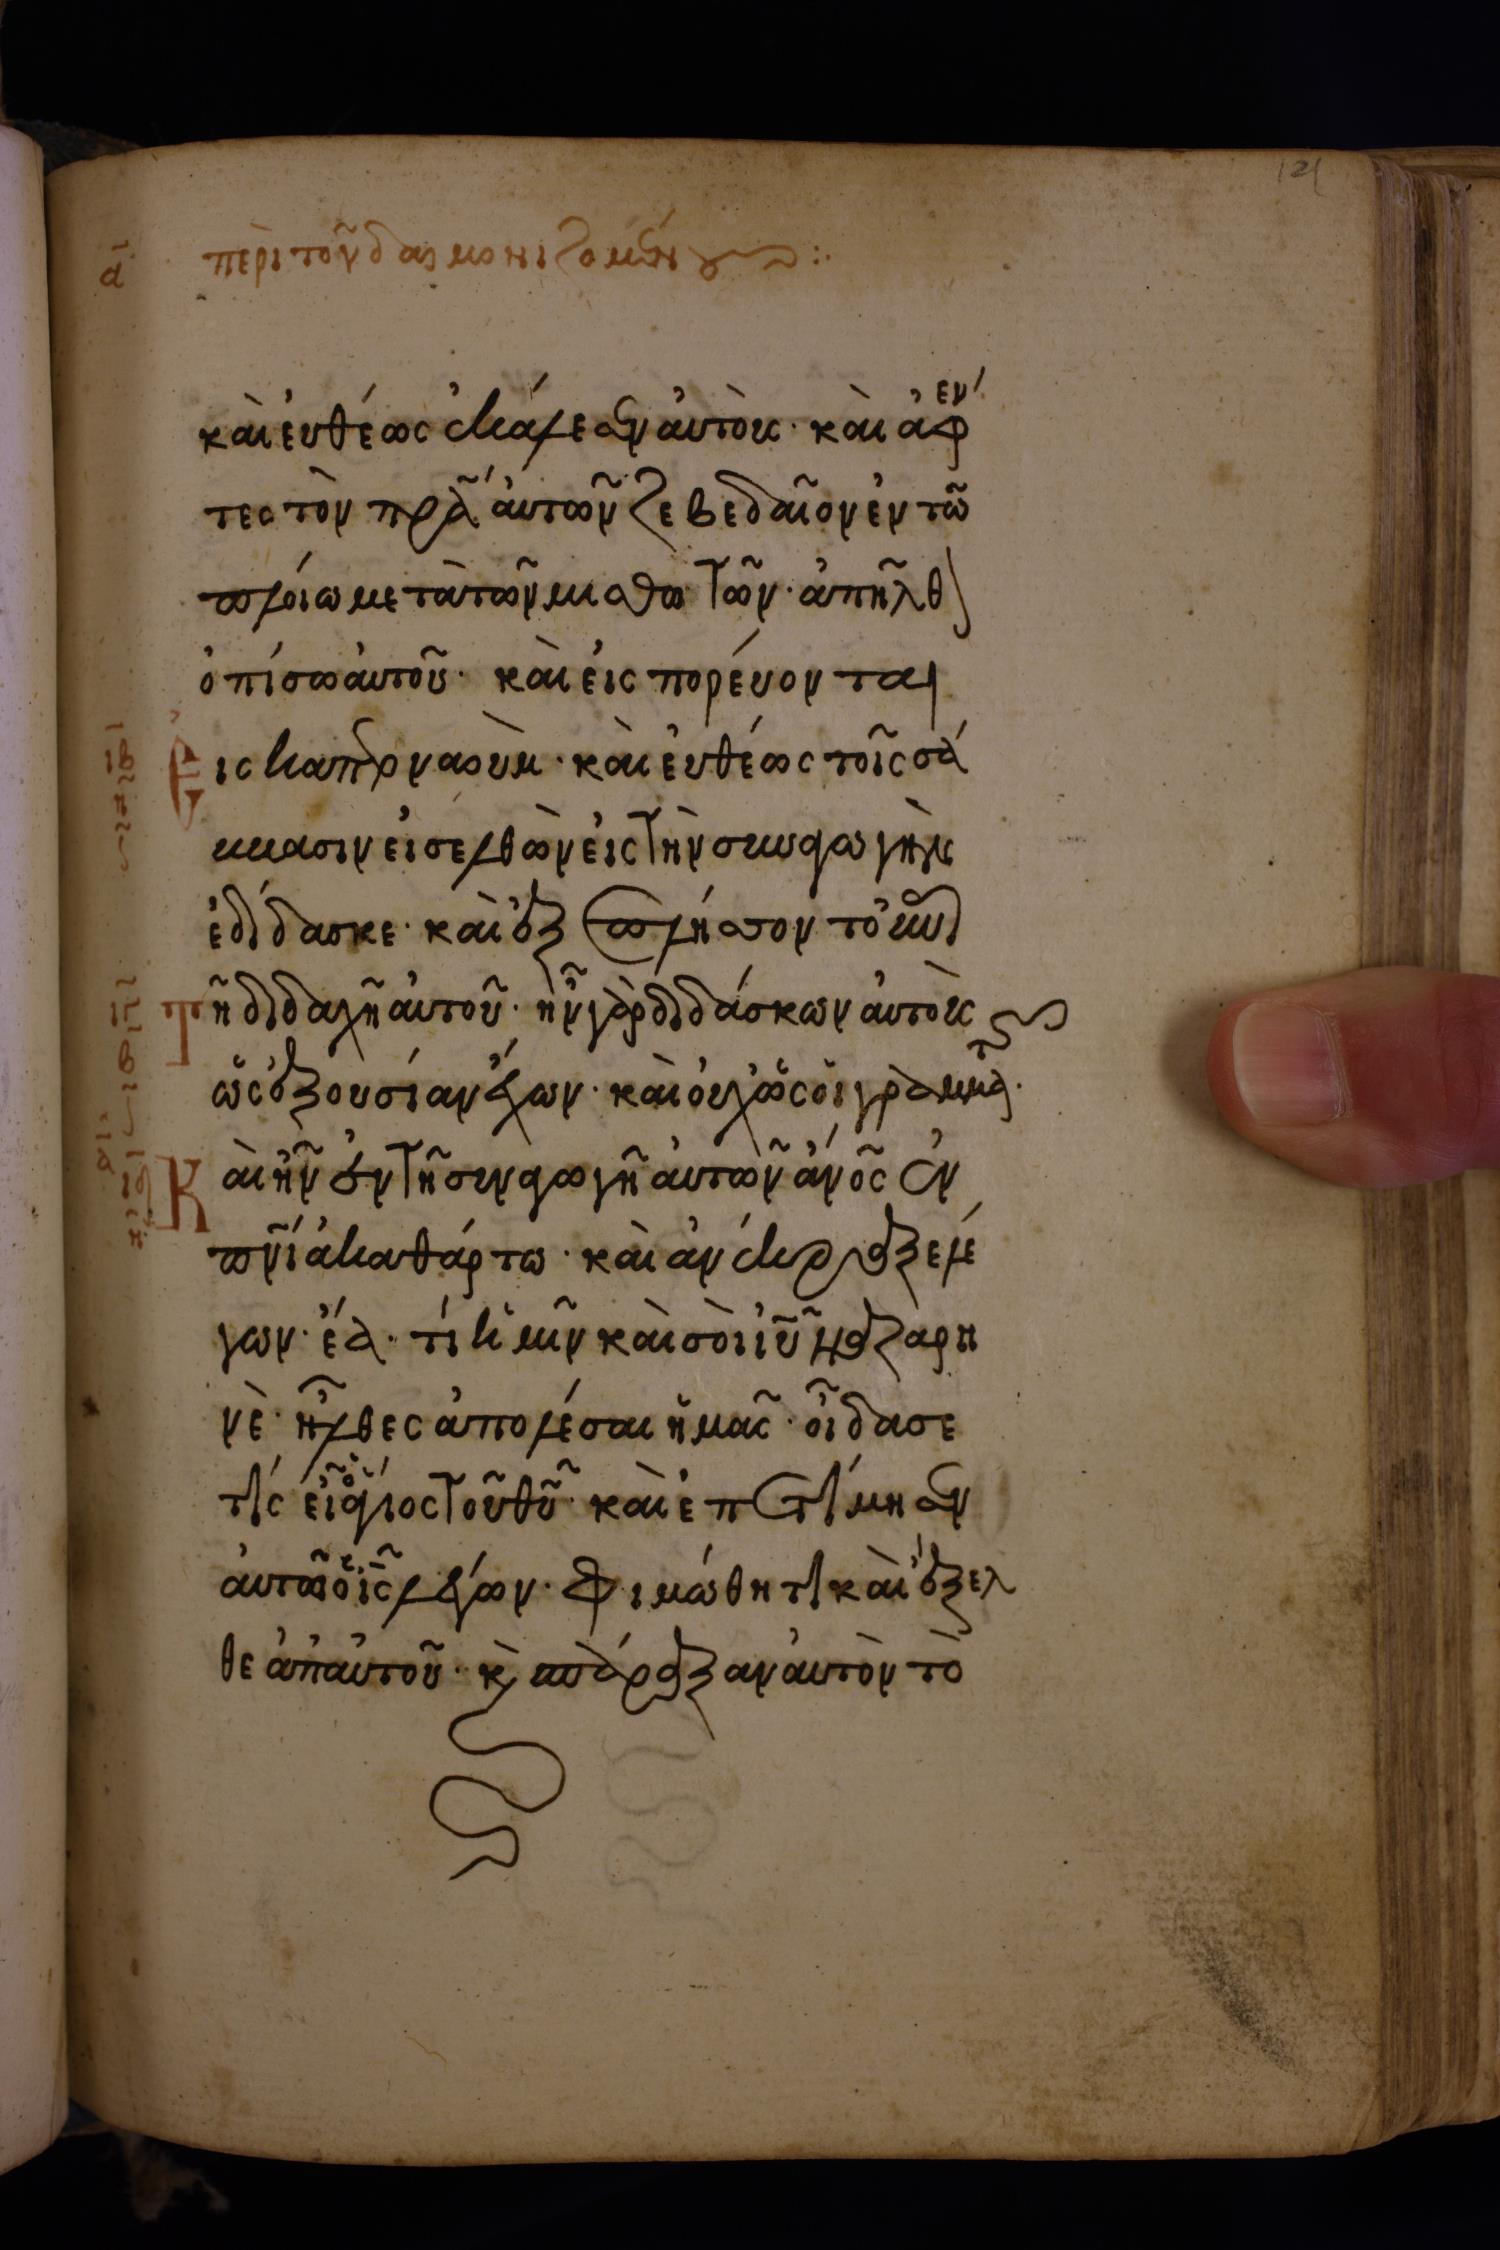 121
ᾱ περὶ τοῦ δαιμονιζομένου
καὶ ἐυθέως ἐκάλεσεν ἀυτοὺς· καὶ ἀφέν
τες τὸν πρ̅α ἀυτῶν ζεβεδαῖον ἐν τῶ
πλοίω μετὰ τῶν μισθωτῶν· ἀπῆλθον
ὀπίσω ἀυτοῦ· καὶ ἐισπορέυονται
ιβ Ἐις καπερναοὺμ· καὶ ἐυθέως τοῖς σά
ββασιν ἐισελθὼν ἐις τὴν συναγωγὴν
ἐδίδασκε· καὶ ἐξεπλήσσοντο ἐπὶ
Τῆ διδαχῆ ἀυτοῦ· ἦν γὰρ διδάσκων ἀυτοὺς
ὡς ἐξουσίαν ἔχων· καὶ ὀυχ ὡς ὁι γραμματεῖς·
Καὶ ἦν ἐν τῆ συναγωγῆ ἀυτῶν ἀν̅ο̅ς ἐν
πν̅ι ἀκαθάρτω· καὶ ἀνέκραξε λέ
γων· ἔα· τί ἡμῖν καὶ σοὶ ἰ̅υ̅ ναζαρη
νὲ· ἦλθες ἀπολέσαι ἡμᾶς· οἶδα σε
τίς εἶ ὁ ἅγιος τοῦ θ̅υ̅· καὶ ἐπετίμησεν
ἀυτῶ ὁ ι̅ς̅ λέγων· φιμώθητι καὶ ἔξελ
θε ἀπ' ἀυτοῦ· κ̀ σπάραξαν ἀυτὸν τὸ